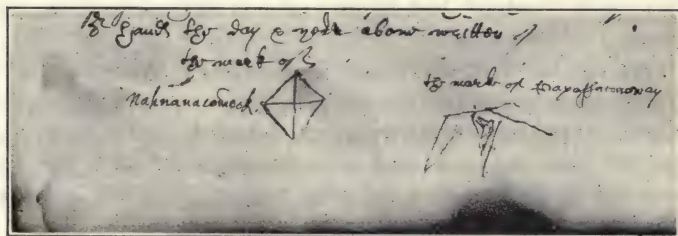 hands the day & yeare above written
the mark of
Nahnanacomock
the marke of Passaconaway